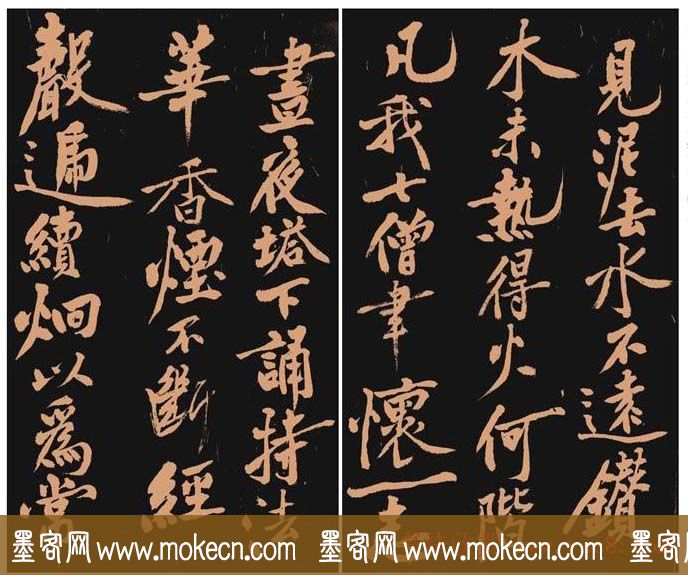 見泥去水不遠鑽
木未熱得火何階
凡我七僧聿懷一志
晝夜塔下誦持法
華香煙不斷經
聲遍續炯以為常
墨客网 www.mokecn.com 墨客网 www.mokecn.com